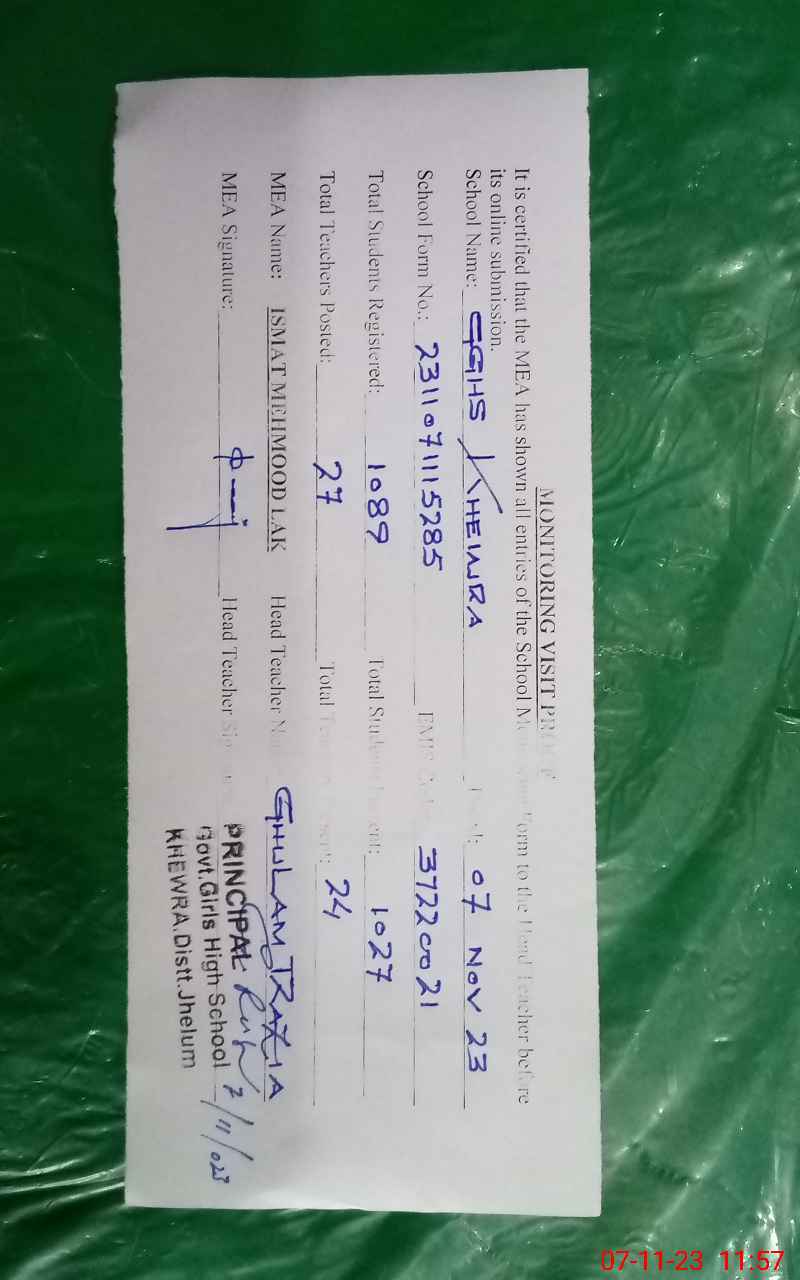 MONITORING VISIT PROOF
It is certified that the MEA has shown all entries of the School Form to the Head Teacher before
its online submission.
School Name: GGHS KHEWRA 07 NOV 23
School Form No.: 2311071115285 EMIS Code: 37220021
Total Students Registered: 1089 Total Student Present: 1027
Total Teachers Posted: 27 Total Present: 24
MEA Name: ISMAT MEHMOOD LAK Head Teacher GHULAM RAZIA
MEA Signature: Head Teacher
PRINCIPAL
Govt.Girls High School 7/11/023
KHEWRA.Distt.Jhelum
07-11-23 11:57